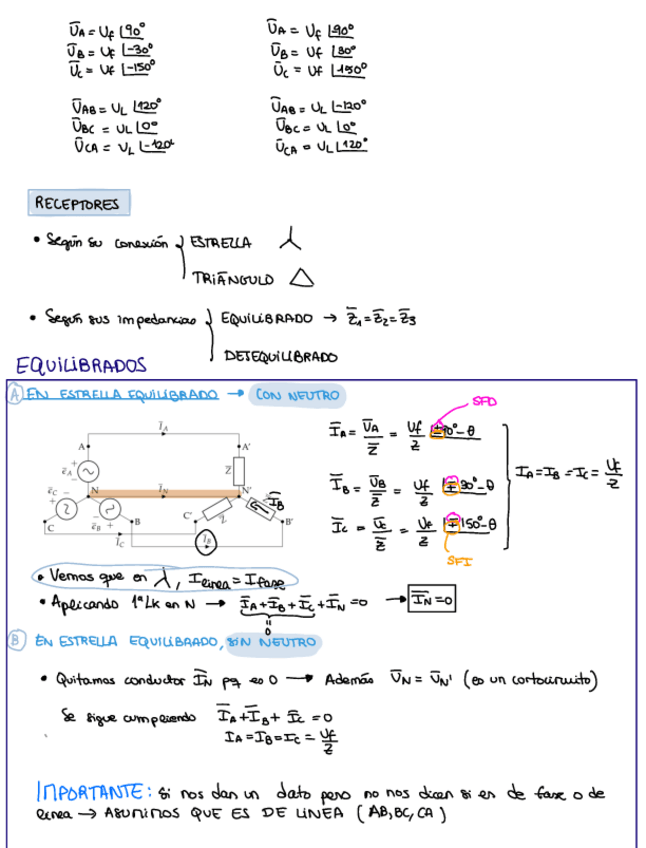 U̅A = Uf ∟90°
U̅B = Uf ∟-30°
U̅c = Uf ∟-150°
U̅AB = UL ∟120°
U̅BC = UL ∟0°
U̅CA = UL ∟-120°
U̅A = Uf ∟90°
U̅B = Uf ∟30°
U̅c = Uf ∟150°
U̅AB = UL ∟-120°
U̅BC = UL ∟0°
U̅CA = UL ∟120°
RECEPTORES
• Según su conexión { ESTRELLA ⅄
TRIÁNGULO △
• Según sus impedancias { EQUILIBRADO → Z̅1 = Z̅2 = Z̅3
DESEQUILIBRADO
EQUILIBRADOS
A EN ESTRELLA EQUILIBRADO → CON NEUTRO
SFD
I̅A = U̅A/Z̅ = Uf/Z ∟±90°-θ
I̅B = U̅B/Z̅ = Uf/Z ∟∓30°-θ
I̅c = U̅c/Z̅ = Uf/Z ∟∓150°-θ
IA = IB = Ic = Uf/Z
SFI
I̅A
A
A'
e̅A
Z
e̅C
N
I̅N
N'
I̅B
e̅B
B
C
C'
Z
B'
I̅C
I̅B
• Vemos que en ⅄, Ilinea = Ifase
• Aplicando 1ªLK en N → I̅A + I̅B + I̅c + I̅N = 0 → I̅N = 0
0
B EN ESTRELLA EQUILIBRADO, SIN NEUTRO
• Quitamos conductor I̅N pq es 0 → Además U̅N = U̅N' (es un cortocircuito)
Se sigue cumpliendo I̅A + I̅B + I̅c = 0
IA = IB = Ic = Uf/Z
IMPORTANTE: Si nos dan un dato pero no nos dicen si es de fase o de
linea → ASUMIMOS QUE ES DE LINEA (AB, BC, CA)